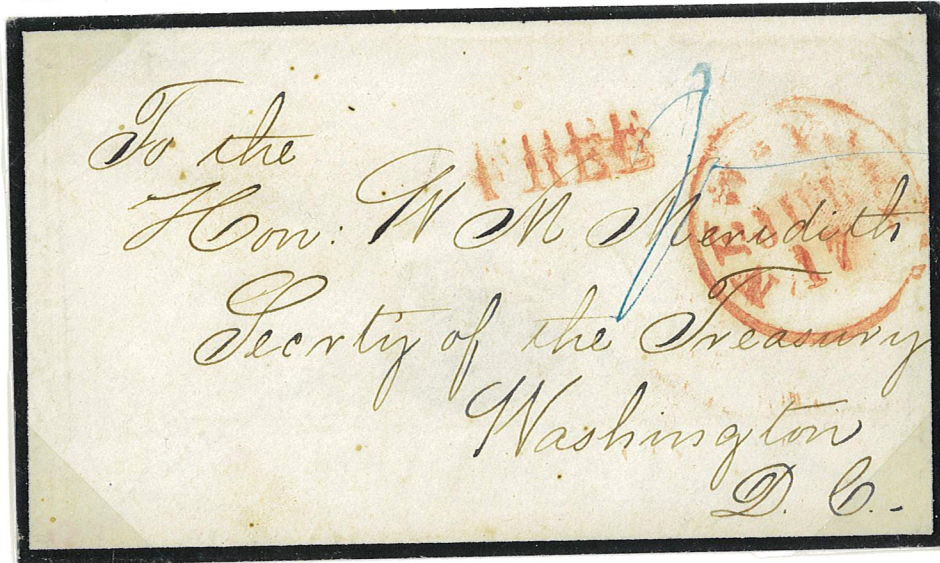 To the
FREE
Hon: W M Meridith
17
Secrty of the Treasury
Washington
D. C.-